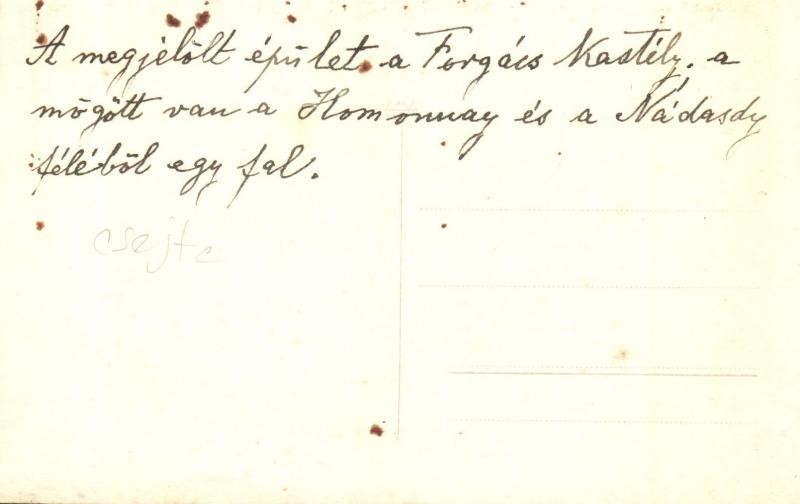 A megjelölt épület a Forgács Kastély, a
mögött van a Homonnay és a Nádasdy
féléböl egy fal.
csejte